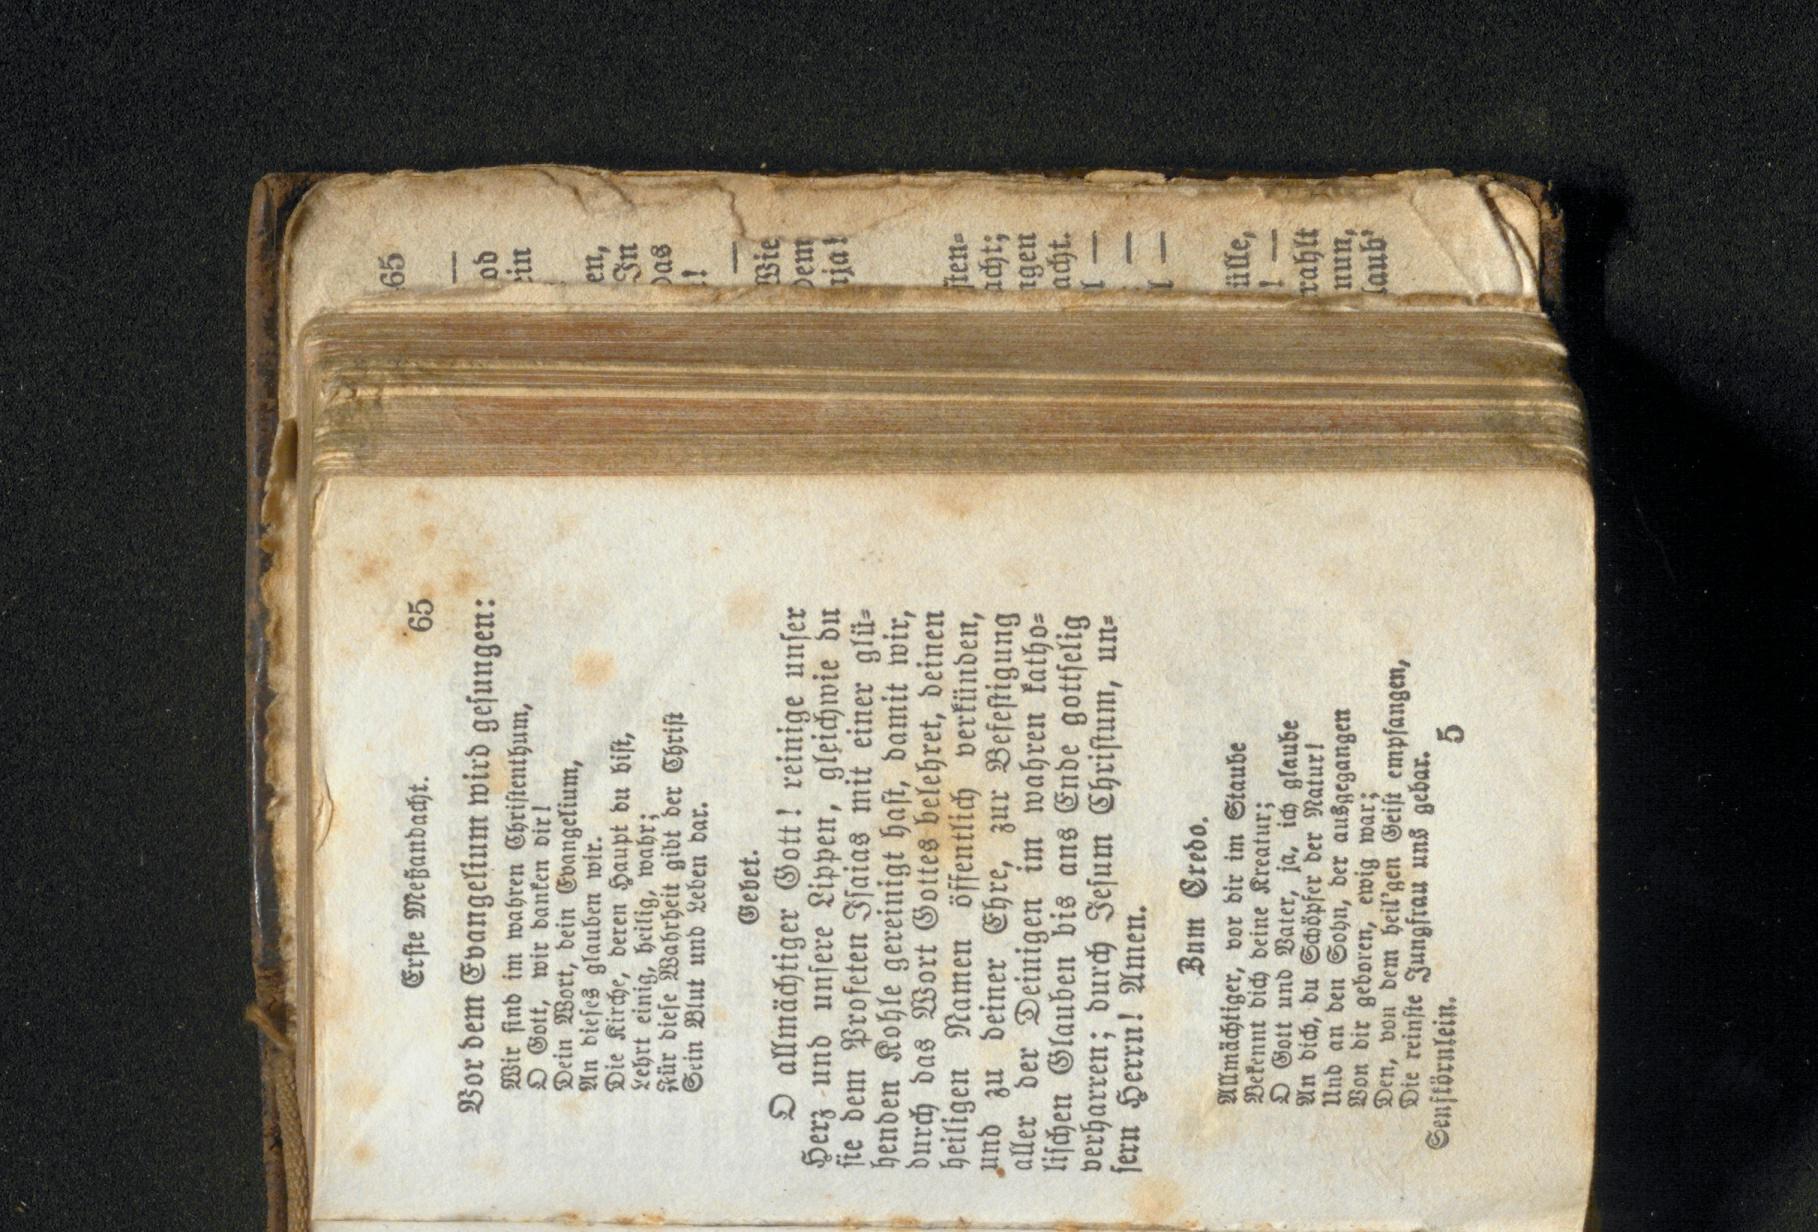 Erste Meßandacht. 65
Vor dem Evangelium wird gesungen:
Wir sind im wahren Christenthum,
O Gott, wir danken dir!
Dein Wort, dein Evangelium,
An dieses glauben wir.
Die Kirche, deren Haupt du bist,
Lehrt einig, heilig, wahr;
Für diese Wahrheit gibt der Christ
Sein Blut und Leben dar.
Gebet.
O allmächtiger Gott! reinige unser
Herz und unsere Lippen, gleichwie du
sie dem Profeten Isaias mit einer glü-
henden Kohle gereinigt hast, damit wir,
durch das Wort Gottes belehret, deinen
heiligen Namen öffentlich verkünden,
und zu deiner Ehre, zur Befestigung
aller der Deinigen im wahren katho-
lischen Glauben bis ans Ende gottselig
verharren; durch Jesum Christum, un-
sern Herrn! Amen.
Zum Credo.
Allmächtiger, vor dir im Staube
Bekennt dich deine Kreatur;
O Gott und Vater, ja, ich glaube
An dich, du Schöpfer der Natur!
Und an den Sohn, der ausgegangen
Von dir geboren, ewig war;
Den, von dem heil'gen Geist empfangen,
Die reinste Jungfrau uns gebar.
Senfkörnlein. 5
65
—
ob
ein
en,
In
das
!
—
Wie
dem
uja!
sten-
acht;
ngen
acht.
l —
—
l —
ülle,
! —
rahlt
nun,
laub'